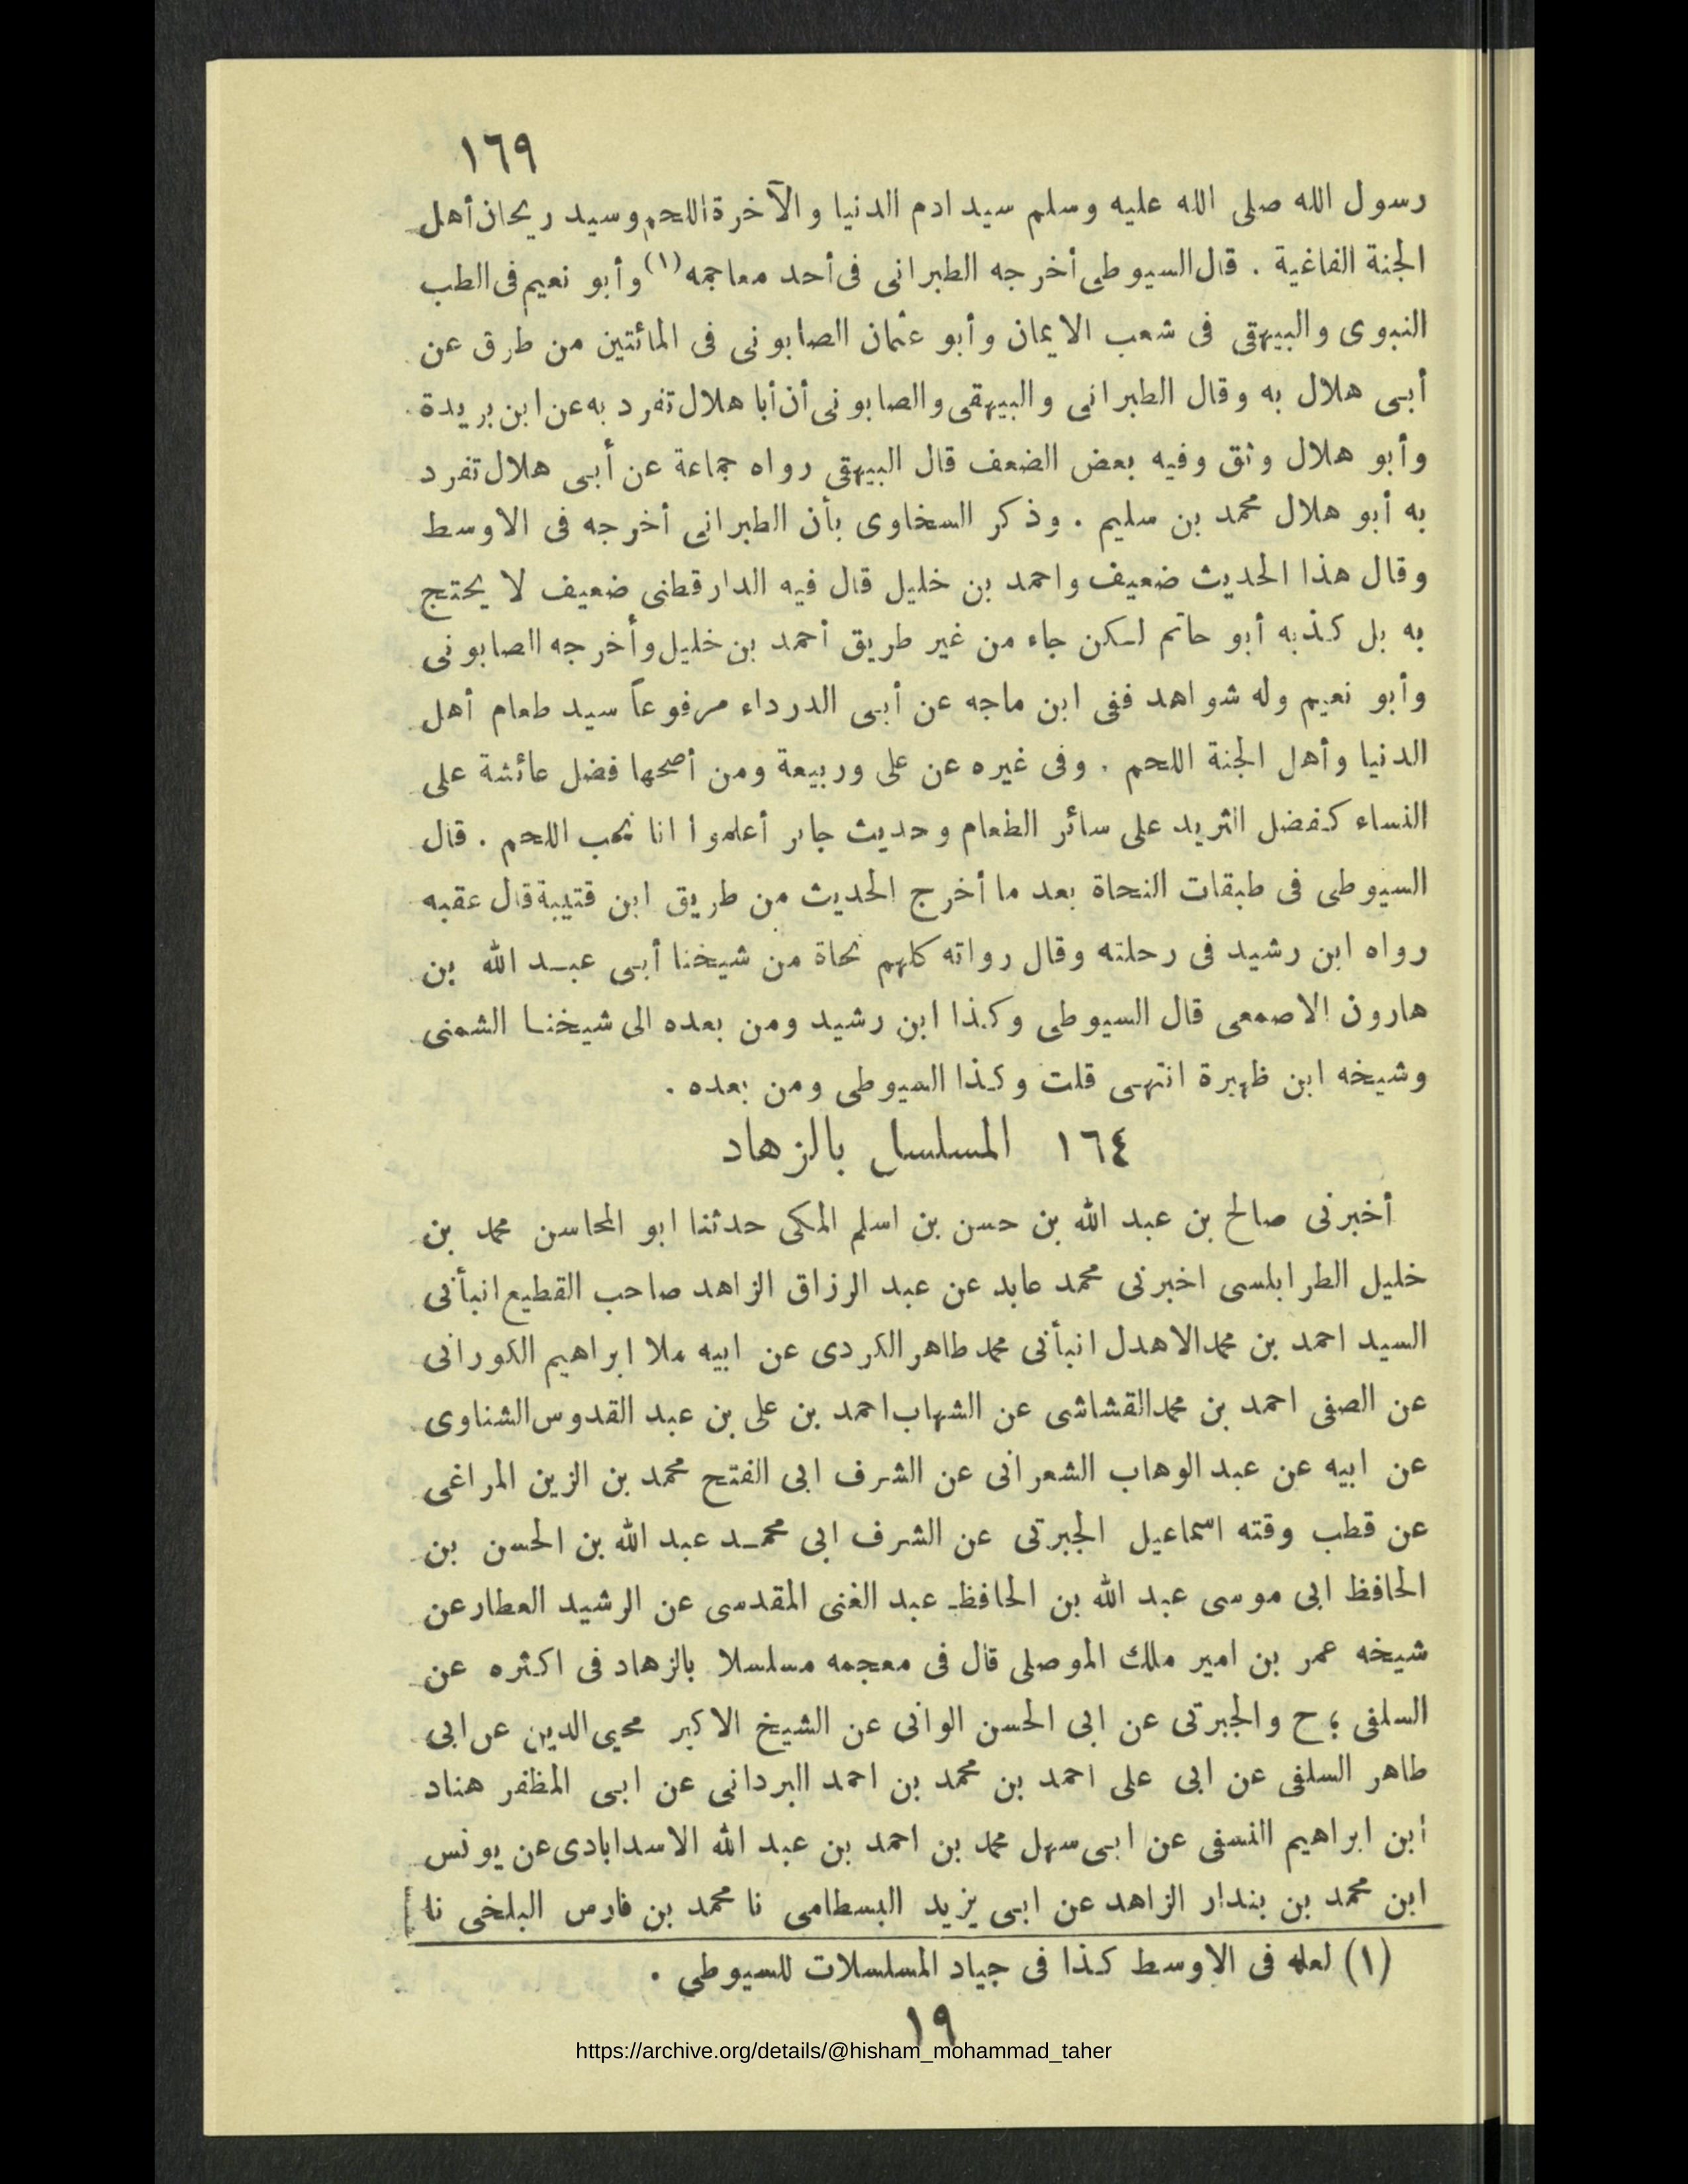 ١٦٩
رسول الله صلى الله عليه وسلم سيد ادم الدنيا والآخرة اللحم وسيد ريحان أهل
الجنة الفاغية . قال السيوطى أخرجه الطبرانى فى أحد معاجمه (١) وأبو نعيم فى الطب
النبوى والبيهقى فى شعب الايمان وأبو عثمان الصابونى فى المائتين من طرق عن
أبى هلال به وقال الطبرانى والبيهقى والصابونى أن أبا هلال تفرد به عن ابن بريدة
وأبو هلال وثق وفيه بعض الضعف قال البيهقى رواه جماعة عن أبى هلال تفرد
به أبو هلال محمد بن سليم . وذكر السخاوى بأن الطبرانى أخرجه فى الاوسط
وقال هذا الحديث ضعيف واحمد بن خليل قال فيه الدارقطنى ضعيف لا يحتج
به بل كذبه أبو حاتم لكن جاء من غير طريق أحمد بن خليل وأخرجه الصابونى
وأبو نعيم وله شواهد ففى ابن ماجه عن أبى الدرداء مرفوعاً سيد طعام أهل
الدنيا وأهل الجنة اللحم . وفى غيره عن على وربيعة ومن أصحها فضل عائشة على
النساء كفضل الثريد على سائر الطعام وحديث جابر أعلموا انا نحب اللحم . قال
السيوطى فى طبقات النحاة بعد ما أخرج الحديث من طريق ابن قتيبة قال عقبه
رواه ابن رشيد فى رحلته وقال رواته كلهم نحاة من شيخنا أبى عبد الله بن
هارون الاصمعى قال السيوطى وكذا ابن رشيد ومن بعده الى شيخنا الشمنى
وشيخه ابن ظهيرة انتهى قلت وكذا السيوطى ومن بعده .
١٦٤ المسلسل بالزهاد
أخبرنى صالح بن عبد الله بن حسن بن اسلم المكى حدثنا ابو المحاسن محمد بن
خليل الطرابلسى اخبرنى محمد عابد عن عبد الرزاق الزاهد صاحب القطيع انبأنى
السيد احمد بن محمد الاهدل انبأنى محمد طاهر الكردى عن ابيه ملا ابراهيم الكورانى
عن الصفى احمد بن محمد القشاشى عن الشهاب احمد بن على بن عبد القدوس الشناوى
عن ابيه عن عبد الوهاب الشعرانى عن الشرف ابى الفتح محمد بن الزين المراغى
عن قطب وقته اسماعيل الجبرتى عن الشرف ابى محمد عبد الله بن الحسن بن
الحافظ ابى موسى عبد الله بن الحافظ عبد الغنى المقدسى عن الرشيد العطار عن
شيخه عمر بن امير ملك الموصلى قال فى معجمه مسلسلا بالزهاد فى اكثره عن
السلفى ؛ ح والجبرتى عن ابى الحسن الوانى عن الشيخ الاكبر محيى الدين عن ابى
طاهر السلفى عن ابى على احمد بن محمد بن احمد البردانى عن ابى المظفر هناد
ابن ابراهيم النسفى عن ابى سهل محمد بن احمد بن عبد الله الاسدابادى عن يونس
ابن محمد بن بندار الزاهد عن ابى يزيد البسطامى نا محمد بن فارس البلخى نا
(١) لعله فى الاوسط كذا فى جياد المسلسلات للسيوطى .
١٩
https://archive.org/details/@hisham_mohammad_taher